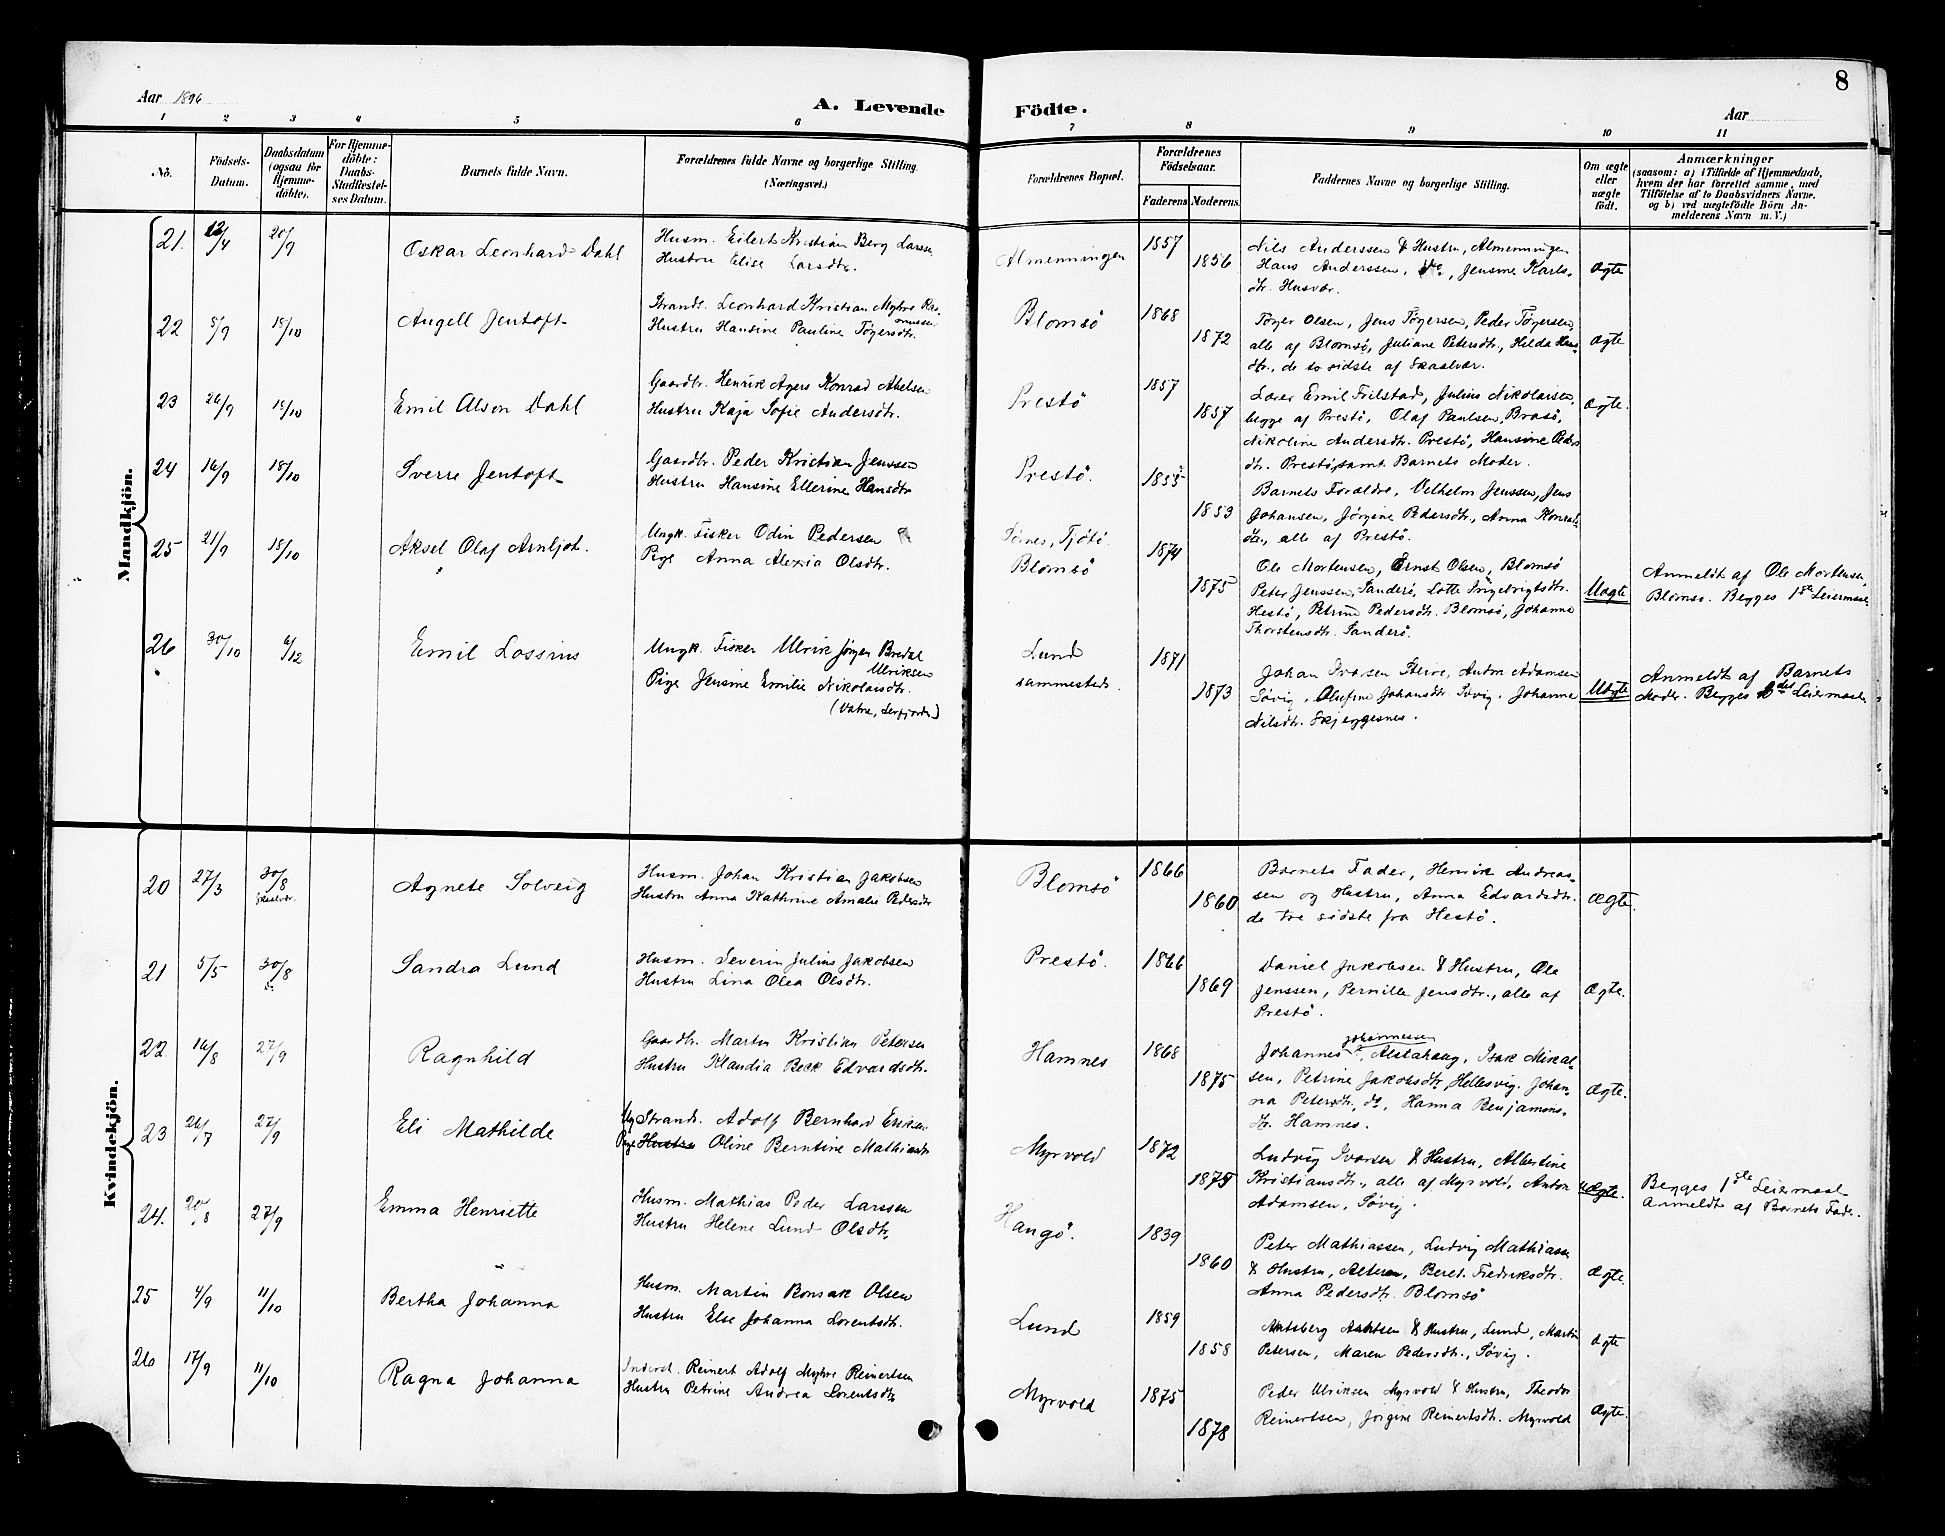 8
Aar 1896
A. Levende Födte.
Aar
1 2 3 4 5 6 7 8 9 10 11
No.
Födsels-
Datum.
Daabsdatum
(ogsaa for
Hjemme-
döbte).
For Hjemme-
döbte:
Daabs-
Stadfæstel-
ses Datum.
Barnets fulde Navn.
Forældrenes fulde Navne og borgerlige Stilling.
(Næringsvei.)
Forældrenes Bopæl.
Forældrenes
Födselsaar.
Faderens
Moderens
Faddernes Navne og borgerlige Stilling.
Om ægte
eller
uægte
födt.
Anmærkninger
(saasom: a) i Tilfælde af Hjemmedaab,
hvem der har forrettet samme, med
Tilföielse af to Daabsvidners Navne,
og b) ved uægtefödte Börn An-
melderens Navn m. V.)
Mandkjön.
21. 12/4 20/9
Oskar Leonhard Dahl
Husm. Eilert Kristian Berg Larssen
Hustru Elise Larsdtr.
Almenningen
1857
1856
Nils Anderssen & Hustru, Almenningen
Hans Anderssen, do, Jensine Karls-
dtr. Husvær.
ægte
22 5/9 18/10
Angell Jentoft
Strands. Leonhard Kristian Myhre Ras-
mussen
Hustru Hansine Pauline Tøgersdtr.
Blomsö
1868
1872
Tøger Olsen, Jens Tøgersen, Peder Tøgersen,
alle af Blomsö, Juliane Petersdtr, Hilda Hans-
dtr., de to sidste af Skaalvær.
ægte
23 26/9 18/10
Emil Alson Dahl
Gaardbr. Henrik Agers Konrad Abelsen
Hustru Kaja Sofie Andersdtr.
Prestö
1857
1857
Lærer Emil Frilstad, Julius Nikolaisen,
begge af Prestö, Olaf Paulsen, Brasö,
Nikoline Andersdtr. Prestö, Hansine Peders
dtr. Prestö, samt Barnets Moder.
ægte.
24 16/9 18/10
Sverre Jentoft
Gaardbr. Peder Kristian Jenssen
Hustru Hansine Ellerine Hansdtr
Prestö.
1855
1853
Barnets Forældre, Vilhelm Jenssen, Jens
Johansen, Jørgine Pedersdtr, Anna Konrads
dtr., alle af Prestö.
25 21/9 18/10
Aksel Olaf Arnljot.
Ungk. Fisker Odin Pedersen
Pige Anna Alexia Olsdtr.
Sørnes, Tjötö.
Blomsö
1874
1875
Ole Mortensen, Ernst Olsen, Blomsö
Peter Jenssen, Sanderö, Lotte Ingebrigtsdtr.
Hestö, Petrine Pedersdtr. Blomsö, Johanna
Thorstensdtr. Sanderö.
Uægte
Anmeldt af Ole Mortensen,
Blomsö. Begges 1ste Leiermaal
26 30/10 6/12
Emil Lossius
Ungk. Fisker Ulrik Jørgen Bredal
Ulriksen
Pige Jensine Emilie Nikolaisdtr.
Lund
sammesteds.
1871
1873
Johan Ivarsen Steiro, Andre Adamsen
Søvig, Olufine Johansdtr. Søvig. Johanne
Nilsdtr. Skjeggesnes.
Uægte
Anmeldt af Barnets
Moder. Begges 2det Leiermaal
Kvindekjön.
20 27/3 30/8
Skaalvær.
Agnete Solveig
Husm. Johan Kristian Jakobsen
Hustru Anna Kathrine Amalie Pedersdtr
Blomsö
1866
1860
Barnets Fader, Henrik Andreas-
sen og Hustru, Anna Edvardsdtr.
de tre sidste fra Hestö.
ægte.
21 5/5 30/8
Sandra Lund
Husm. Severin Julius Jakobsen
Hustru Lina Olea Olsdtr.
Prestö.
1866
1869
Daniel Jakobsen & Hustru, Ole
Jenssen, Pernille Jensdtr., alle af
Prestö.
ægte.
22. 16/8 27/9
Ragnhild
Gaardbr. Martin Kristian Petersen
Hustru Klaudia Beck Edvardsdtr.
Hamnes
1868
1875
Johannessen
Johannes Alstahaug, Isak Mikal-
sen, Petrine Jakobsdtr, Hellesvig. Johan-
na Petersdtr, do, Hanna Benjamins-
dtr. Hamnes.
ægte.
23 26/7 27/9
Eli Mathilde
Ug Strands. Adolf Bernhard Eriksen
Pige Hustru Oline Berntine Mathiasdtr
Myrvold
1872
1875
Ludvig Ivarsen & Hustru, Albertine
Kristiansdtr., alle af Myrvold, Anton
Adamsen, Søvig.
Uægte.
Begges 1ste Leiermaal
Anmeldt af Barnets Fader.
24. 20/8 27/9
Emma Henriette
Husm. Mathias Peder Larssen
Hustru Helene Lund Olsdtr.
Haugö.
1839
1860
Peter Mathiassen, Ludvig Mathiassen
& Hustru, Alteren, Beret Fredriksdtr.
Anna Pedersdtr. Blomsö
ægte.
25 4/9 11/10
Bertha Johanna
Husm. Martin Bonsak Olsen
Hustru Else Johanna Lorentsdtr.
Lund
1859
1858
& Hustru, Lund, Martin
Petersen, Maren Pedersdtr., Søvig.
ægte
26 17/9 11/10
Ragna Johanna
Inderst. Reinert Adolf Myhre Reinertsen
Hustru Petrine Andrea Lorentsdtr
Myrvold
1875
1878
Peder Ulriksen Myrvold & Hustru, Theodor
Reinertsen, Jørgine Reinertsdtr. Myrvold
ægte.